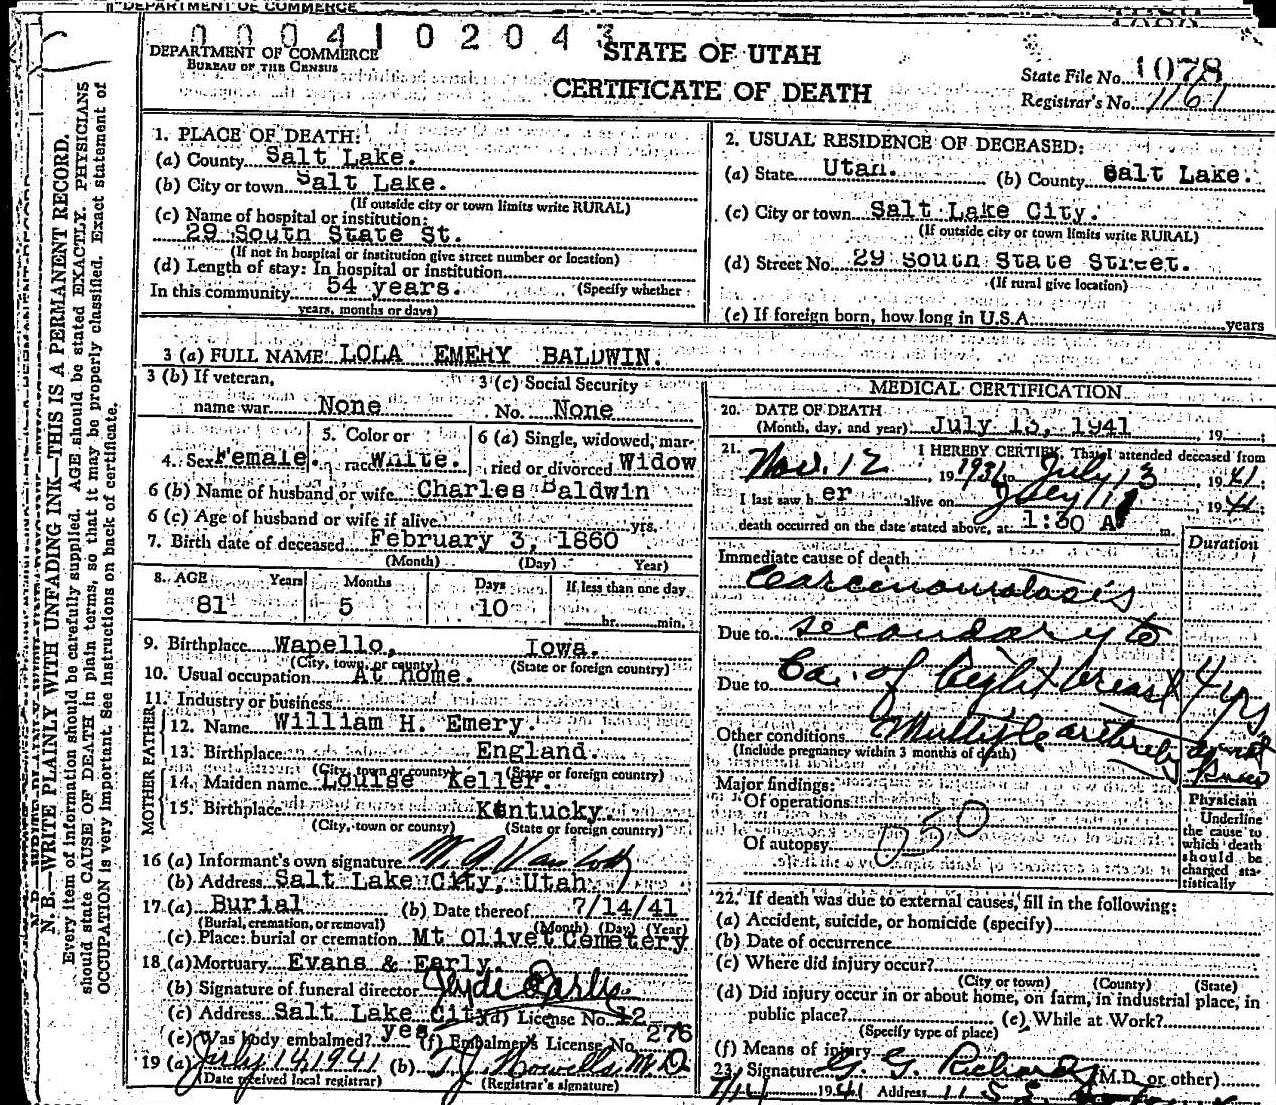 DEPARTMENT OF COMMERCE
0004102043
DEPARTMENT OF COMMERCE
BUREAU OF THE CENSUS
STATE OF UTAH
CERTIFICATE OF DEATH
State File No. 1078
Registrar's No. 1161
N. B.—WRITE PLAINLY WITH UNFADING INK—THIS IS A PERMANENT RECORD.
Every item of information should be carefully supplied. AGE should be stated EXACTLY. PHYSICIANS
should state CAUSE OF DEATH in plain terms, so that it may be properly classified. Exact statement of
OCCUPATION is very important. See instructions on back of certificate.
1. PLACE OF DEATH:
(a) County Salt Lake.
(b) City or town Salt Lake.
(If outside city or town limits write RURAL)
(c) Name of hospital or institution:
29 South State St.
(If not in hospital or institution give street number or location)
(d) Length of stay: In hospital or institution
In this community 54 years. (Specify whether
years, months or days)
2. USUAL RESIDENCE OF DECEASED:
(a) State Utah. (b) County Salt Lake.
(c) City or town Salt Lake City.
(If outside city or town limits write RURAL)
(d) Street No. 29 South State Street.
(If rural give location)
(e) If foreign born, how long in U.S.A. years
3 (a) FULL NAME LOLA EMERY BALDWIN.
3 (b) If veteran, name war None
3 (c) Social Security No. None
4. Sex Female.
5. Color or race White.
6 (a) Single, widowed, married or divorced Widow
6 (b) Name of husband or wife Charles Baldwin
6 (c) Age of husband or wife if alive yrs.
7. Birth date of deceased February 3, 1860
(Month) (Day) Year)
8. AGE Years Months Days If less than one day
81 5 10 hr. min.
9. Birthplace Wapello, Iowa.
(City, town, or county) (State or foreign country)
10. Usual occupation At home.
11. Industry or business
FATHER
12. Name William H. Emery.
13. Birthplace England.
(City, town or county) (State or foreign country)
MOTHER
14. Maiden name Louise Keller.
15. Birthplace Kentucky.
(City, town or county) (State or foreign country)
16 (a) Informant's own signature
(b) Address Salt Lake City, Utah
17. (a) Burial (b) Date thereof 7/14/41
(Burial, cremation, or removal) (Month) (Day) (Year)
(c) Place: burial or cremation Mt Olivet Cemetery
18 (a) Mortuary Evans & Early.
(b) Signature of funeral director
(c) Address Salt Lake City (d) License No. 12
(e) Was body embalmed? yes (f) Embalmer's License No. 276
19 (a) July 14 1941 (b) T. J. Howells M.D.
(Date received local registrar) (Registrar's signature)
MEDICAL CERTIFICATION
20. DATE OF DEATH
(Month, day, and year) July 13, 1941, 19
21. I HEREBY CERTIFY, That I attended deceased from
Nov. 12, 19 to July 13, 1941;
I last saw her alive on July 11, 1941;
death occurred on the date stated above, at 1:30 A m.
Duration
Immediate cause of death
Carcinomatosis
Due to secondary to
Due to Ca. of Right breast 4 yrs
Other conditions Multiple
(Include pregnancy within 3 months of death)
Major findings:
Of operations
Of autopsy 050
Physician
Underline
the cause to
which death
should be
charged sta-
tistically
22. If death was due to external causes, fill in the following:
(a) Accident, suicide, or homicide (specify)
(b) Date of occurrence
(c) Where did injury occur?
(City or town) (County) (State)
(d) Did injury occur in or about home, on farm, in industrial place, in
public place? (e) While at Work?
(Specify type of place)
(f) Means of injury
23. Signature G. G. Richards (M.D. or other)
1941 Address